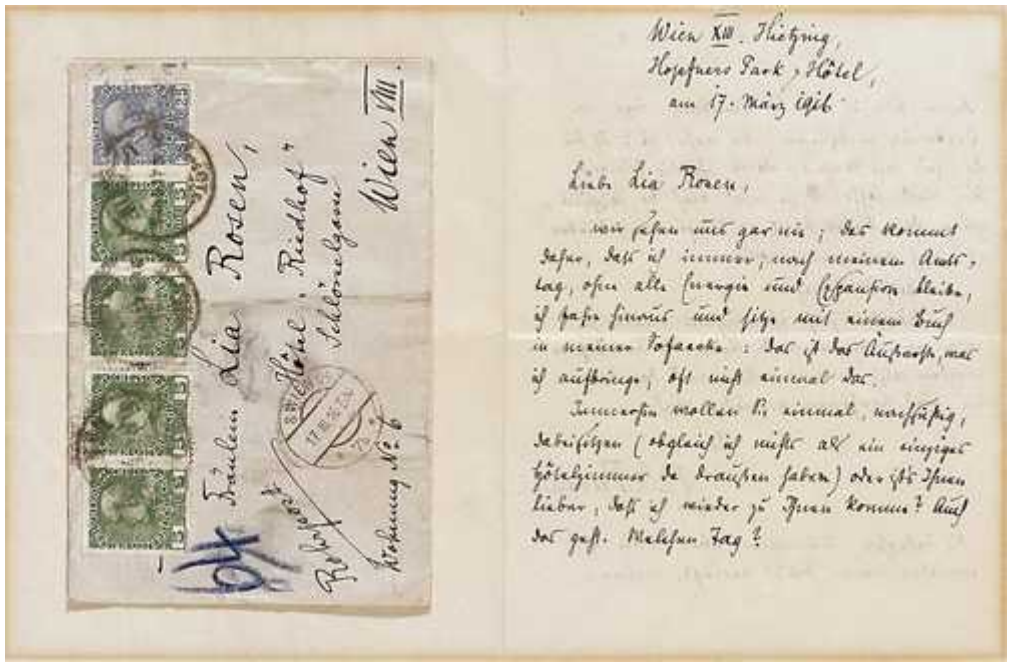 Fräulein Lia Rosen,
Hôtel „Riedhof“
Schlösselgasse
Wien VIII.
Wohnung No. 6
Wien XIII. Hietzing,
Hopfners Park-Hôtel,
am 17. März 1916.
Liebe Lia Rosen,
wir sehen uns gar nie; das kommt
daher, daß ich immer, nach meinem Amts-
tag, ohne alle Energie und Expansion bleibe,
ich fahre hinaus und sitze mit einem Buch
in meiner Sofaecke: das ist das Äußerste, was
ich aufbringe, oft nicht einmal das.
Immerhin wollen Sie einmal, nachsichtig,
dabeisitzen (obgleich ich nichts als ein einziges
Hôtelzimmer da draußen habe) oder ists Ihnen
lieber, daß ich wieder zu Ihnen komme? Auch
das geht. Welchen Tag?